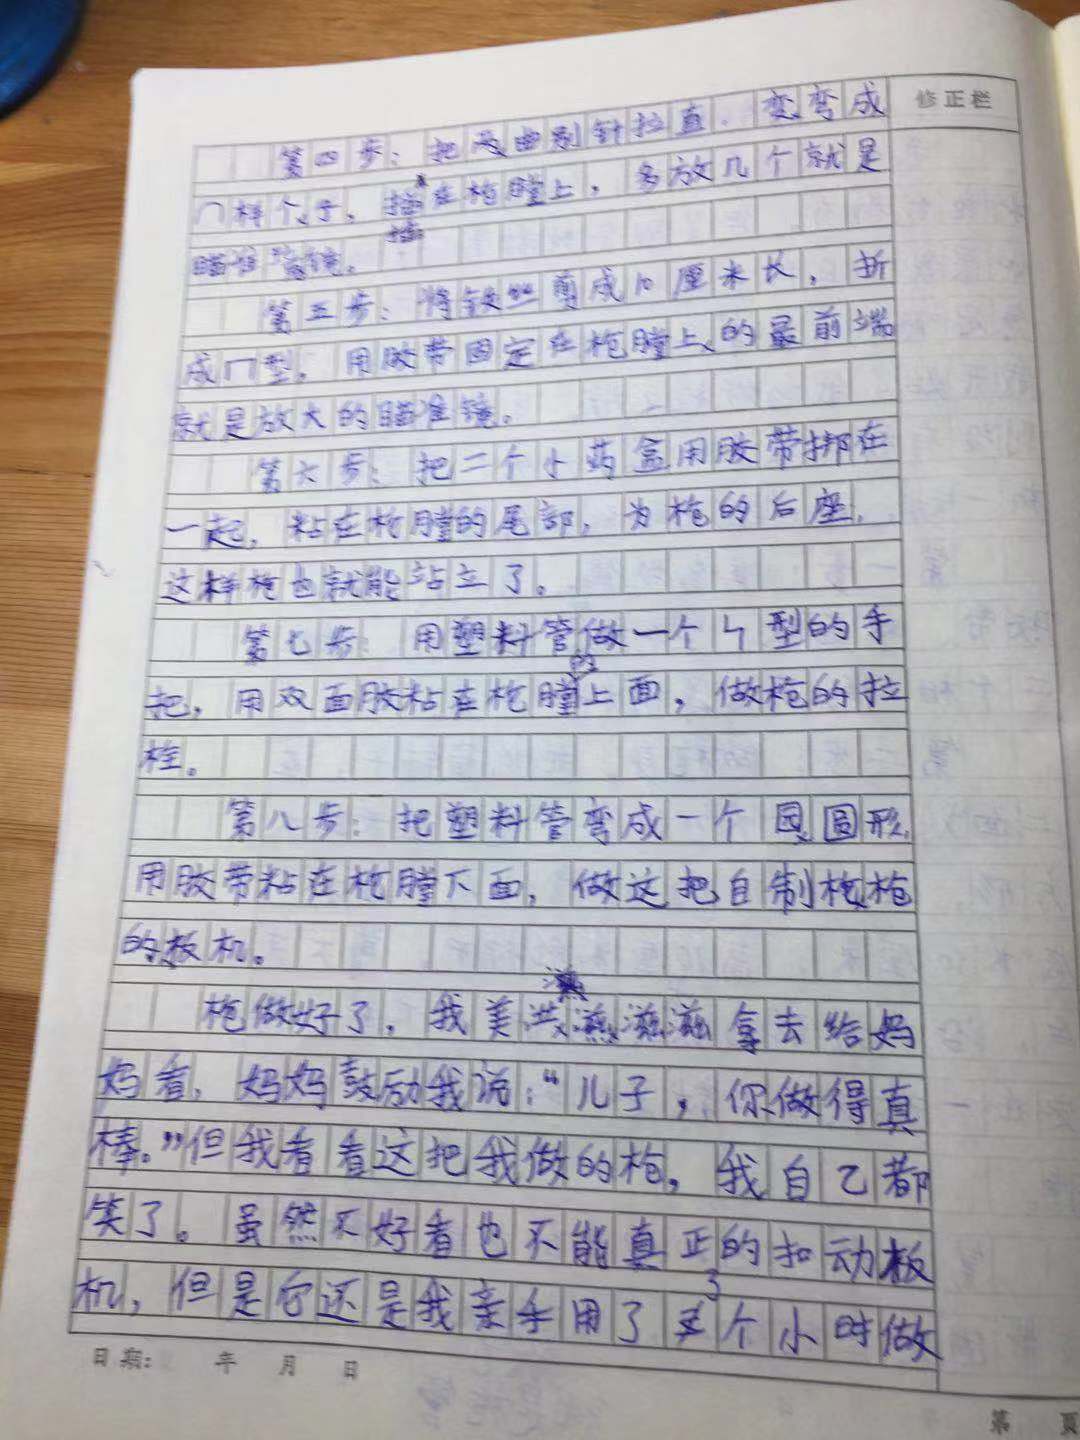 修正栏
第四步：把曲别针拉直，变弯成
冂样个子，插在枪膛上，多放几个就是
瞄准镜。
第五步：将铁丝剪成10厘米长，折
成冂型，用胶带固定在枪膛上的最前端
就是放大的瞄准镜。
第六步：把二个小药盒用胶带绑在
一起，粘在枪膛的尾部，为枪的后座，
这样枪也就能站立了。
第七步：用塑料管做一个ㄣ型的手
把，用双面胶粘在枪膛的上面，做枪的拉
栓。
第八步：把塑料管弯成一个圆形，
用胶带粘在枪膛下面，做这把自制枪枪
的板机。
枪做好了，我美滋滋滋拿去给妈
妈看，妈妈鼓励我说：“儿子，你做得真
棒。”但我看看这把我做的枪，我自己都
笑了。虽然不好看也不能真正的扣动板
机，但是它还是我亲手用了3个小时做
日期： 年 月 日
第 页